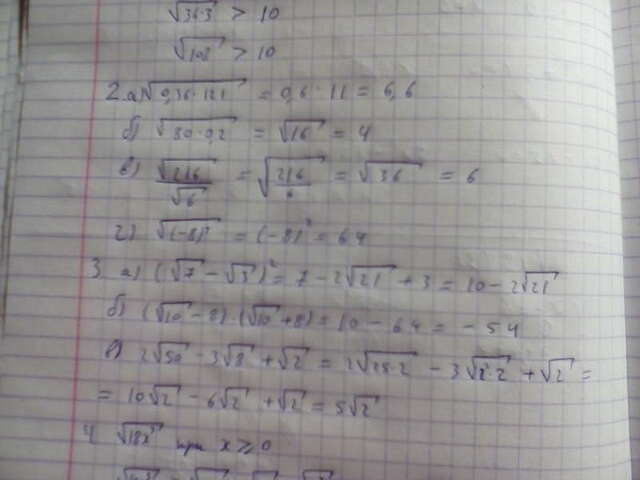 √36·3 > 10
√108 > 10
2. а) √0,36·121 = 0,6·11 = 6,6
б) √80·0,2 = √16 = 4
в) √216/√6 = √(216/6) = √36 = 6
г) = (-8)² = 64
3. а) (√7 - √3)² = 7 - 2√21 + 3 = 10 - 2√21
б) (√10 - 8)·(√10 + 8) = 10 - 64 = -54
в) 2√50 - 3√8 + √2 = 2√25·2 - 3√2²·2 + √2 =
= 10√2 - 6√2 + √2 = 5√2
4 при x ≥ 0